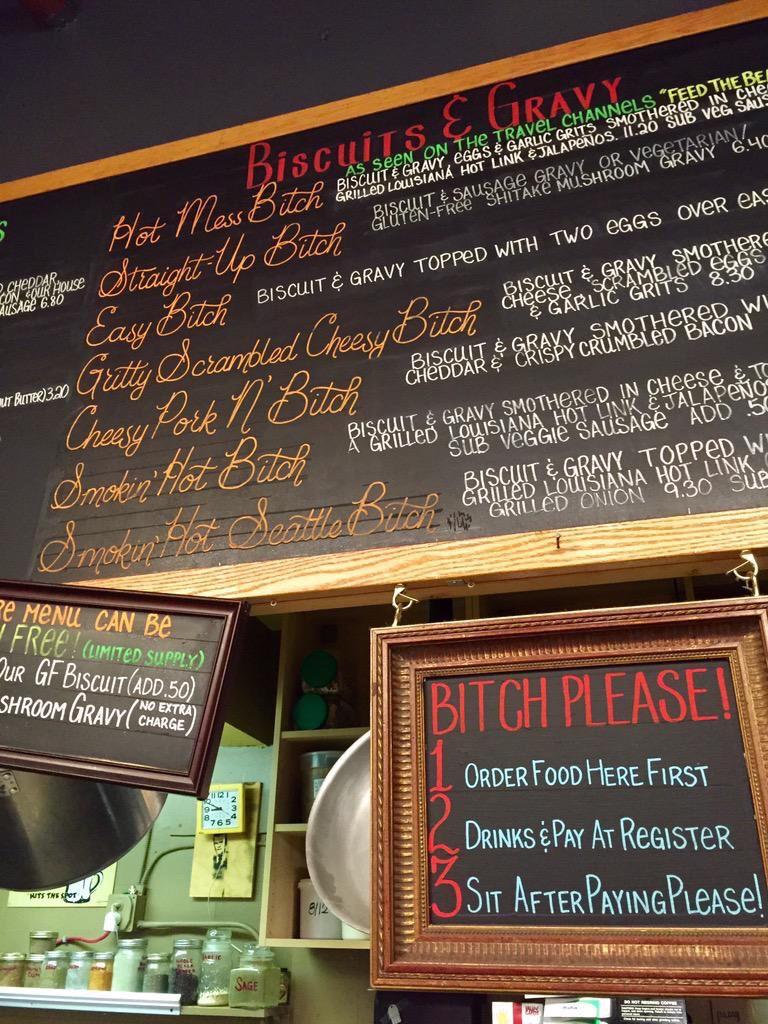 BISCUITS & GRAVY
AS SEEN ON THE TRAVEL CHANNELS "FEED THE
Hot Mess Bitch
BISCUIT & GRAVY, EGGS & GARLIC GRITS SMOTHERED IN
GRILLED LOUISIANA HOT LINK & JALAPENOS. 11.20 SUB VEG
Straight-Up Bitch
BISCUIT & SAUSAGE GRAVY OR VEGETARIAN/
GLUTEN-FREE SHITAKE MUSHROOM GRAVY 6.40
Easy Bitch
BISCUIT & GRAVY TOPPED WITH TWO EGGS OVER
Gritty Scrambled Cheesy Bitch
BISCUIT & GRAVY SMOTHERE
CHEESE, SCRAMBLED EGGS
& GARLIC GRITS 8.30
Cheesy Pork N' Bitch
BISCUIT & GRAVY SMOTHERED
CHEDDAR & CRISPY CRUMBLED BACON
Smokin' Hot Bitch
BISCUIT & GRAVY SMOTHERED IN CHEESE &
A GRILLED LOUISIANA HOT LINK & JALAPENOS
SUB VEGGIE SAUSAGE ADD .50
Smokin' Hot Seattle Bitch
BISCUIT & GRAVY TOPPED
GRILLED LOUISIANA HOT LINK
GRILLED ONION 9.30 SUB
S
CHEDDAR
CON & OUR HOUSE
AUSAGE 6.80
UT BUTTER) 3.20
RE MENU CAN BE
FREE! (LIMITED SUPPLY)
OUR GF BISCUIT (ADD .50)
SHROOM GRAVY (NO EXTRA
CHARGE)
BITCH PLEASE!
1 ORDER FOOD HERE FIRST
2 DRINKS & PAY AT REGISTER
3 SIT AFTER PAYING PLEASE!
HITS THE SPOT
8/12
SAGE